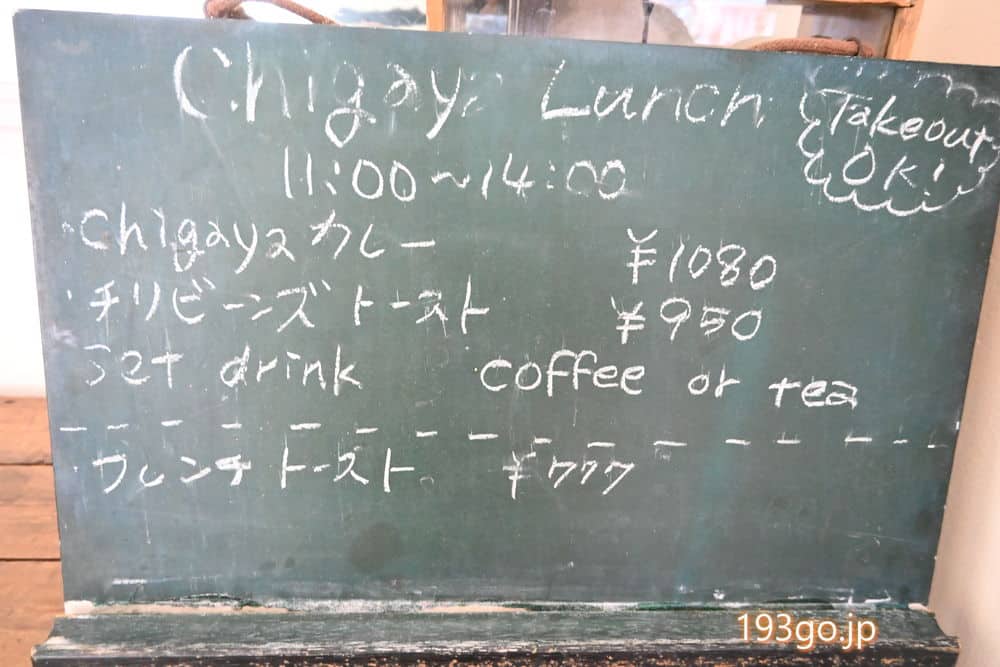 Chigaya Lunch
Takeout
OK!
11:00~14:00
・Chigayaカレー ¥1080
・チリビーンズトースト ¥950
Set drink coffee or tea
・フレンチトースト ¥777
193go.jp